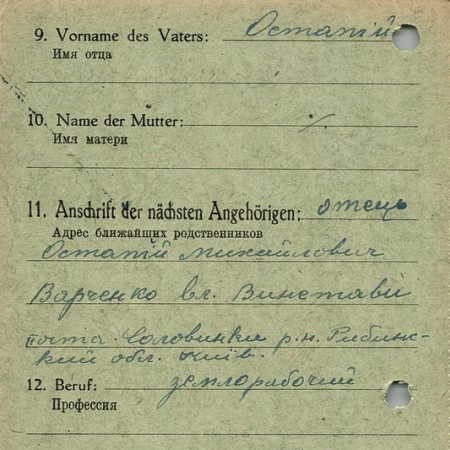 9. Vorname des Vaters: Остатій
Имя отца
10. Name der Mutter: ·/.
Имя матери
11. Anschrift der nächsten Angehörigen: отець
Адрес ближайших родственников
Остатій Михайлович
Варченко вл. Винстави
пошта р.н. Рибинс-
кий обл. Київ.
12. Beruf: землорабочий
Профессия